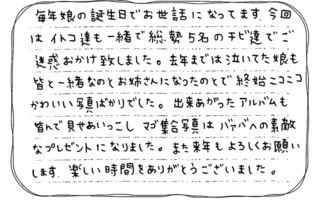 毎年娘の誕生日でお世話になってます。今回
はイトコ達も一緒で総勢5名のチビ達でご
迷惑おかけ致しました。去年までは泣いてた娘も
皆と一緒なのとお姉さんになったのとで終始ニコニコ
かわいい写真ばかりでした。出来あがったアルバムも
皆んで見せあいっこし、マゴ集合写真はバァバへの素敵
なプレゼントになりました。また来年もよろしくお願い
します。楽しい時間をありがとうございました。